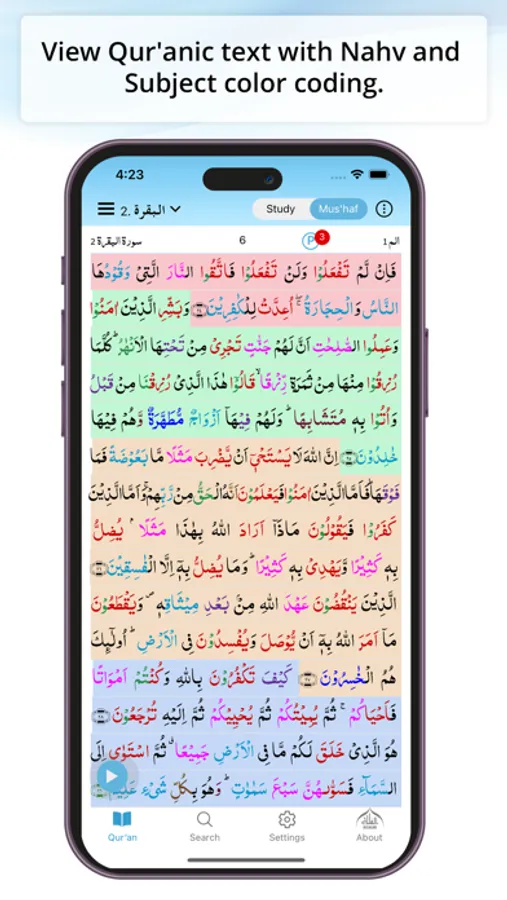 View Qur'anic text with Nahv and
Subject color coding.
4:23
2. البقرة
Study
Mus'haf
سورة البقرة 2
6
P
3
الم 1
فَاِنۡ لَّمۡ تَفۡعَلُوۡا وَلَنۡ تَفۡعَلُوۡا فَاتَّقُوا النَّارَ الَّتِىۡ وَقُوۡدُهَا
النَّاسُ وَالۡحِجَارَةُ ۖۚ اُعِدَّتۡ لِلۡكٰفِرِيۡنَ وَبَشِّرِ الَّذِيۡنَ اٰمَنُوۡا
وَعَمِلُوا الصّٰلِحٰتِ اَنَّ لَهُمۡ جَنّٰتٍ تَجۡرِىۡ مِنۡ تَحۡتِهَا الۡاَنۡهٰرُ ؕ كُلَّمَا
رُزِقُوۡا مِنۡهَا مِنۡ ثَمَرَةٍ رِّزۡقًا ۙ قَالُوۡا هٰذَا الَّذِىۡ رُزِقۡنَا مِنۡ قَبۡلُ
وَاُتُوۡا بِهٖ مُتَشَابِهًا ؕ وَلَهُمۡ فِيۡهَآ اَزۡوَاجٌ مُّطَهَّرَةٌ وَّهُمۡ فِيۡهَا
خٰلِدُوۡنَ اِنَّ اللّٰهَ لَا يَسۡتَحۡىٖۤ اَنۡ يَّضۡرِبَ مَثَلًا مَّا بَعُوۡضَةً فَمَا
فَوۡقَهَا ؕ فَاَمَّا الَّذِيۡنَ اٰمَنُوۡا فَيَعۡلَمُوۡنَ اَنَّهُ الۡحَقُّ مِنۡ رَّبِّهِمۡ ۚ وَاَمَّا الَّذِيۡنَ
كَفَرُوۡا فَيَقُوۡلُوۡنَ مَاذَآ اَرَادَ اللّٰهُ بِهٰذَا مَثَلًا ۘ يُضِلُّ
بِهٖ كَثِيۡرًا وَّيَهۡدِىۡ بِهٖ كَثِيۡرًا ؕ وَمَا يُضِلُّ بِهٖۤ اِلَّا الۡفٰسِقِيۡنَ
الَّذِيۡنَ يَنۡقُضُوۡنَ عَهۡدَ اللّٰهِ مِنۡۢ بَعۡدِ مِيۡثَاقِهٖ ۖ وَيَقۡطَعُوۡنَ
مَآ اَمَرَ اللّٰهُ بِهٖۤ اَنۡ يُّوۡصَلَ وَيُفۡسِدُوۡنَ فِى الۡاَرۡضِ ؕ اُولٰٓئِكَ
هُمُ الۡخٰسِرُوۡنَ كَيۡفَ تَكۡفُرُوۡنَ بِاللّٰهِ وَكُنۡتُمۡ اَمۡوَاتًا
فَاَحۡيَاکُمۡ ۚ ثُمَّ يُمِيۡتُكُمۡ ثُمَّ يُحۡيِيۡكُمۡ ثُمَّ اِلَيۡهِ تُرۡجَعُوۡنَ
هُوَ الَّذِىۡ خَلَقَ لَكُمۡ مَّا فِى الۡاَرۡضِ جَمِيۡعًا ۗ ثُمَّ اسۡتَوٰٓى اِلَى
السَّمَآءِ فَسَوّٰٮهُنَّ سَبۡعَ سَمٰوٰتٍ ؕ وَهُوَ بِكُلِّ شَىۡءٍ عَلِيۡمٌ
Qur'an
Search
Settings
About